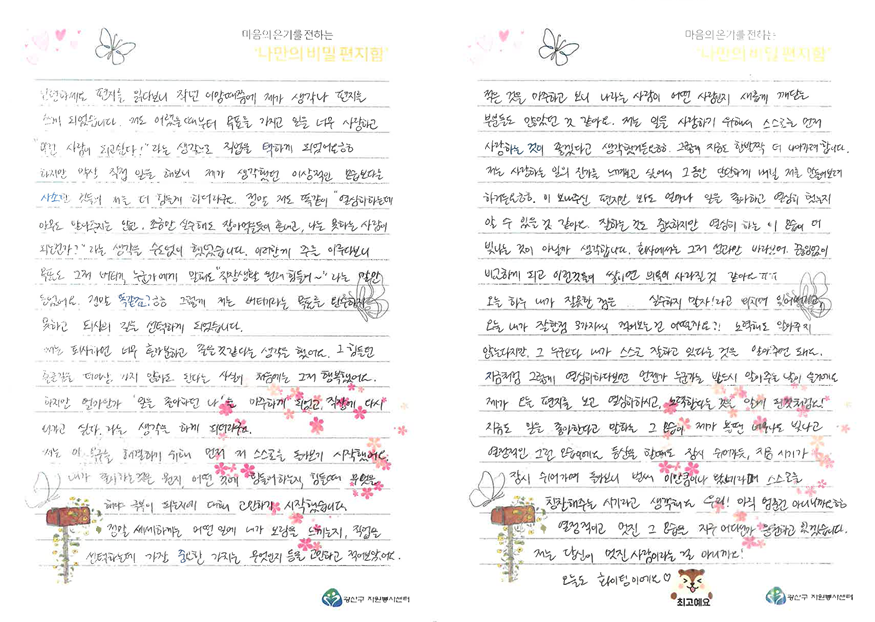 마음의 온기를 전하는
'나만의 비밀 편지함'
안녕하세요 편지를 읽다보니 작년 이맘때쯤에 제가 생각나 편지를
쓰게 되었습니다. 저도 어렸을때부터 목표를 가지고 일을 너무 사랑하고
사람이 되고싶다!" 라는 생각으로 직업을 택하게 되었어요ㅎㅎ
하지만 막상 직접 일을 해보니 제가 생각했던 이상적인
저를 더 힘들게 하더라구요. 정말 저도 똑같이 "열심히하는데
아무도 알아주지는 않고, 조금만 실수해도 나는 못하는 사람이
되는건가?" 라는 생각을 수도없이 했었습니다. 이러한게 주를 이루다보니
목표도 그저 버티기, 누군가에게 말해도 "직장생활 원래 힘들어~" 라는 말만
들었어요. 정말 똑같죠?ㅎㅎ 그렇게 저는 버티기라는 목표를
못하고 퇴사의 길을 선택하게 되었습니다.
저는 퇴사하면 너무 홀가분하고 좋을것같다는 생각을 했어요. 그 힘든
출근길을 더이상 가지 않아도 된다는 사실이 처음에는 그저 행복했어요.
하지만 얼마안가 '일을 좋아했던 나'를 마주하게 되었고, 직장에 다시
싶다. 라는 생각을 하게 되더라구요.
저는 이 해결하기 위해 먼저 저 스스로를 돌아보기 시작했어요
내가 좋아하는것은 뭔지 어떤 것에 힘들어하는지, 힘들때 무엇을
해야 극복이 되는지에 대해 고민하기 시작했습니다.
정말 세세하게는 어떤 일에 내가 보람을 느끼는지, 직업을
선택하는데 가장 중요한 가치는 무엇인지 등을 고민하고 적어보았어요.
광산구 자원봉사센터
마음의 온기를 전하는
'나만의 비밀 편지함'
적은 것을 마주하고 보니 나라는 사람이 어떤 사람인지 새롭게 깨닫는
부분들도 많았던 것 같아요. 저는 일을 사랑하기 위해서 스스로를 먼저
사랑하는 것이 좋겠다고 생각했거든요ㅎㅎ. 그렇게 지금도 한발짝 더 나아가려 합니다.
저는 사랑하는 일의 진가를 느끼고 싶어서 그동안 단단하게 버틸 저를 만들어보려
하거든요ㅎㅎ. 이 보내주신 편지만 봐도 얼마나 일을 좋아하고 열심히 했는지
알 수 있을 것 같아요. 잘하는 것도 중요하지만 열심히 하는 이 모습이 더
빛나는 것이 아닐까 생각합니다. 회사에서는 그저 성과만 바라보며, 끊임없이
비교하게 되고 이런것들이 쌓이면 의욕이 사라질 것 같아요ㅠㅠ
오늘 하루 내가 잘못한 점은 실수하지 말자!라고
오늘 내가 잘한점 3가지씩 적어보는건 어떨까요?! 노력해도 알아주지
않는다지만. 그 누구보다 내가 스스로 잘하고 있다는 것을 알아주면 돼요.
지금처럼 그렇게 열심히하다보면 언젠가 누군가는 반드시 알아주는 날이 올거예요
제가 오늘 편지를 보고 열심히하시고, 노력한다는 것을 알게 된것처럼요!
지금도 일을 좋아한다고 말하는 그 모습이 제가 봤던 너무나도 빛나고
열정적인 그런 모습이에요 등산을 할때도 잠시 쉬어가듯, 지금 시기가
잠시 쉬어가며 돌아보니 벌써 이만큼이나 왔네라며 스스로
칭찬해주는 시기라고 생각해요 우리! 아직 멈춘건 아니니까요ㅎㅎ
열정적이고 멋진 그 모습을 지구 어디선가 응원하고 있겠습니다.
저는 당신이 멋진 사람이라는 걸 아니까요!
오늘도 화이팅이에요♡
최고예요
광산구 자원봉사센터